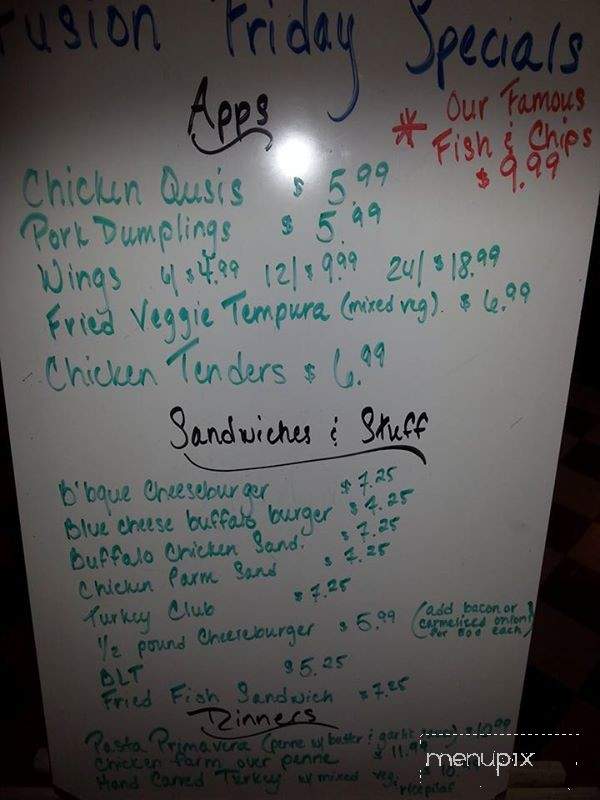 Fusion Friday Specials
Apps
* Our Famous
Fish & Chips
$9.99
Chicken Qusis $5.99
Pork Dumplings $5.99
Wings 6/$4.99 12/$9.99 24/$18.99
Fried Veggie Tempura (mixed veg). $6.99
Chicken Tenders $6.99
Sandwiches & Stuff
B'bque Cheeseburger $7.25
Blue cheese buffalo burger $7.25
Buffalo Chicken Sand. $7.25
Chicken Parm Sand $7.25
Turkey Club $7.25
1/2 pound Cheeseburger $5.99 (add bacon or
carmelized onions
for 50¢ each)
BLT $5.25
Fried Fish Sandwich $7.25
Dinners
Pasta Primavera (penne w/ butter & garlic sauce) $10.99
Chicken Parm over penne $11.99
Hand Carved Turkey w/ mixed veg
menupix